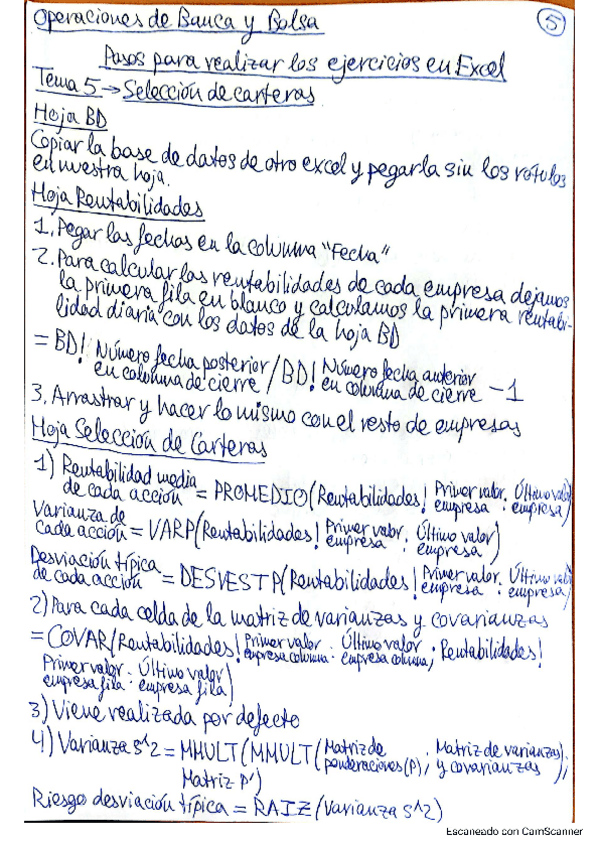 Operaciones de Banca y Bolsa
5
Pasos para realizar los ejercicios en Excel
Tema 5 → Selección de carteras
Hoja BD
Copiar la base de datos de otro excel y pegarla sin los rótulos
en nuestra hoja.
Hoja Rentabilidades
1. Pegar las fechas en la columna "Fecha"
2. Para calcular las rentabilidades de cada empresa dejamos
la primera fila en blanco y calculamos la primera rentabi-
lidad diaria con los datos de la hoja BD
= BD! Número fecha posterior en columna de cierre / BD! Número fecha anterior en columna de cierre - 1
3. Arrastrar y hacer lo mismo con el resto de empresas
Hoja Selección de Carteras
1) Rentabilidad media de cada acción = PROMEDIO(Rentabilidades! Primer valor empresa : Último valor empresa)
Varianza de cada acción = VARP(Rentabilidades! Primer valor empresa : Último valor empresa)
Desviación típica de cada acción = DESVESTP(Rentabilidades! Primer valor empresa : Último valor empresa)
2) Para cada celda de la matriz de varianzas y covarianzas
= COVAR(Rentabilidades! Primer valor empresa columna : Último valor empresa columna; Rentabilidades!
Primer valor empresa fila : Último valor empresa fila)
3) Viene realizada por defecto
4) Varianza s^2 = MMULT(MMULT(Matriz de ponderaciones (P); Matriz de varianzas y covarianzas);
Matriz P')
Riesgo desviación típica = RAIZ(Varianza s^2)
Escaneado con CamScanner